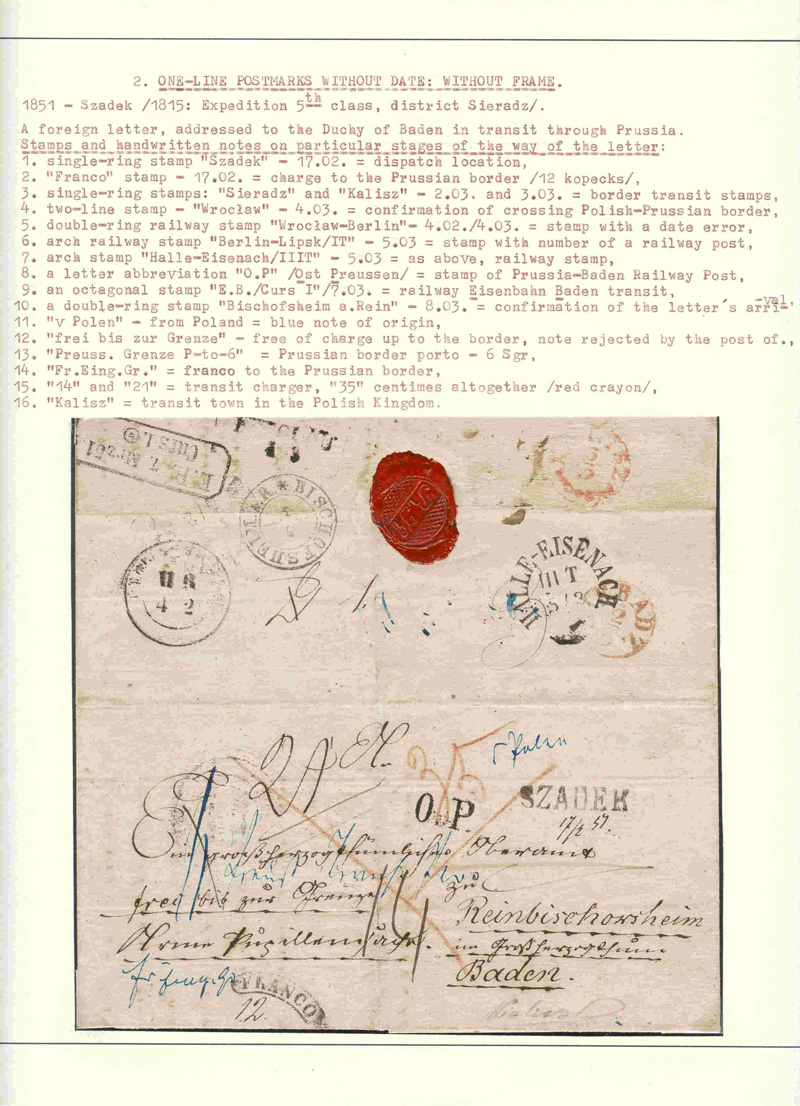 2. ONE-LINE POSTMARKS WITHOUT DATE: WITHOUT FRAME.
1851 - Szadek /1815: Expedition 5th class, district Sieradz/.
A foreign letter, addressed to the Duchy of Baden in transit through Prussia.
Stamps and handwritten notes on particular stages of the way of the letter:
1. single-ring stamp "Szadek" - 17.02. = dispatch location,
2. "Franco" stamp - 17.02. = charge to the Prussian border /12 kopecks/,
3. single-ring stamps: "Sieradz" and "Kalisz" - 2.03. and 3.03. = border transit stamps,
4. two-line stamp - "Wrocław" - 4.03. = confirmation of crossing Polish-Prussian border,
5. double-ring railway stamp "Wrocław-Berlin"- 4.02./4.03. = stamp with a date error,
6. arch railway stamp "Berlin-Lipsk/IT" - 5.03 = stamp with number of a railway post,
7. arch stamp "Halle-Eisenach/IIIT" - 5.03 = as above, railway stamp,
8. a letter abbreviation "O.P" /Ost Preussen/ = stamp of Prussia-Baden Railway Post,
9. an octagonal stamp "E.B./Curs I"/7.03. = railway Eisenbahn Baden transit,
10. a double-ring stamp "Bischofsheim a.Rein" - 8.03. = confirmation of the letter's arri-val,
11. "v Polen" - from Poland = blue note of origin,
12. "frei bis zur Grenze" - free of charge up to the border, note rejected by the post of.,
13. "Preuss. Grenze P-to-6" = Prussian border porto - 6 Sgr,
14. "Fr.Eing.Gr." = franco to the Prussian border,
15. "14" and "21" = transit charger, "35" centimes altogether /red crayon/,
16. "Kalisz" = transit town in the Polish Kingdom.
E.B. 7. Mrz 51
Curs I.
BISCHOFSHEIM
II 8
4 2
HALLE-EISENACH
III T
5 3
v Polen
35
O.P.
SZADEK
17/2 51.
Ein großherzogthümliches Oberamt
frei bis zur Grenze
zu
Reinbischorsheim
Arme Pupillensache.
im Großherzogthum
Baden.
14
FRANCO
12.
Kalisz